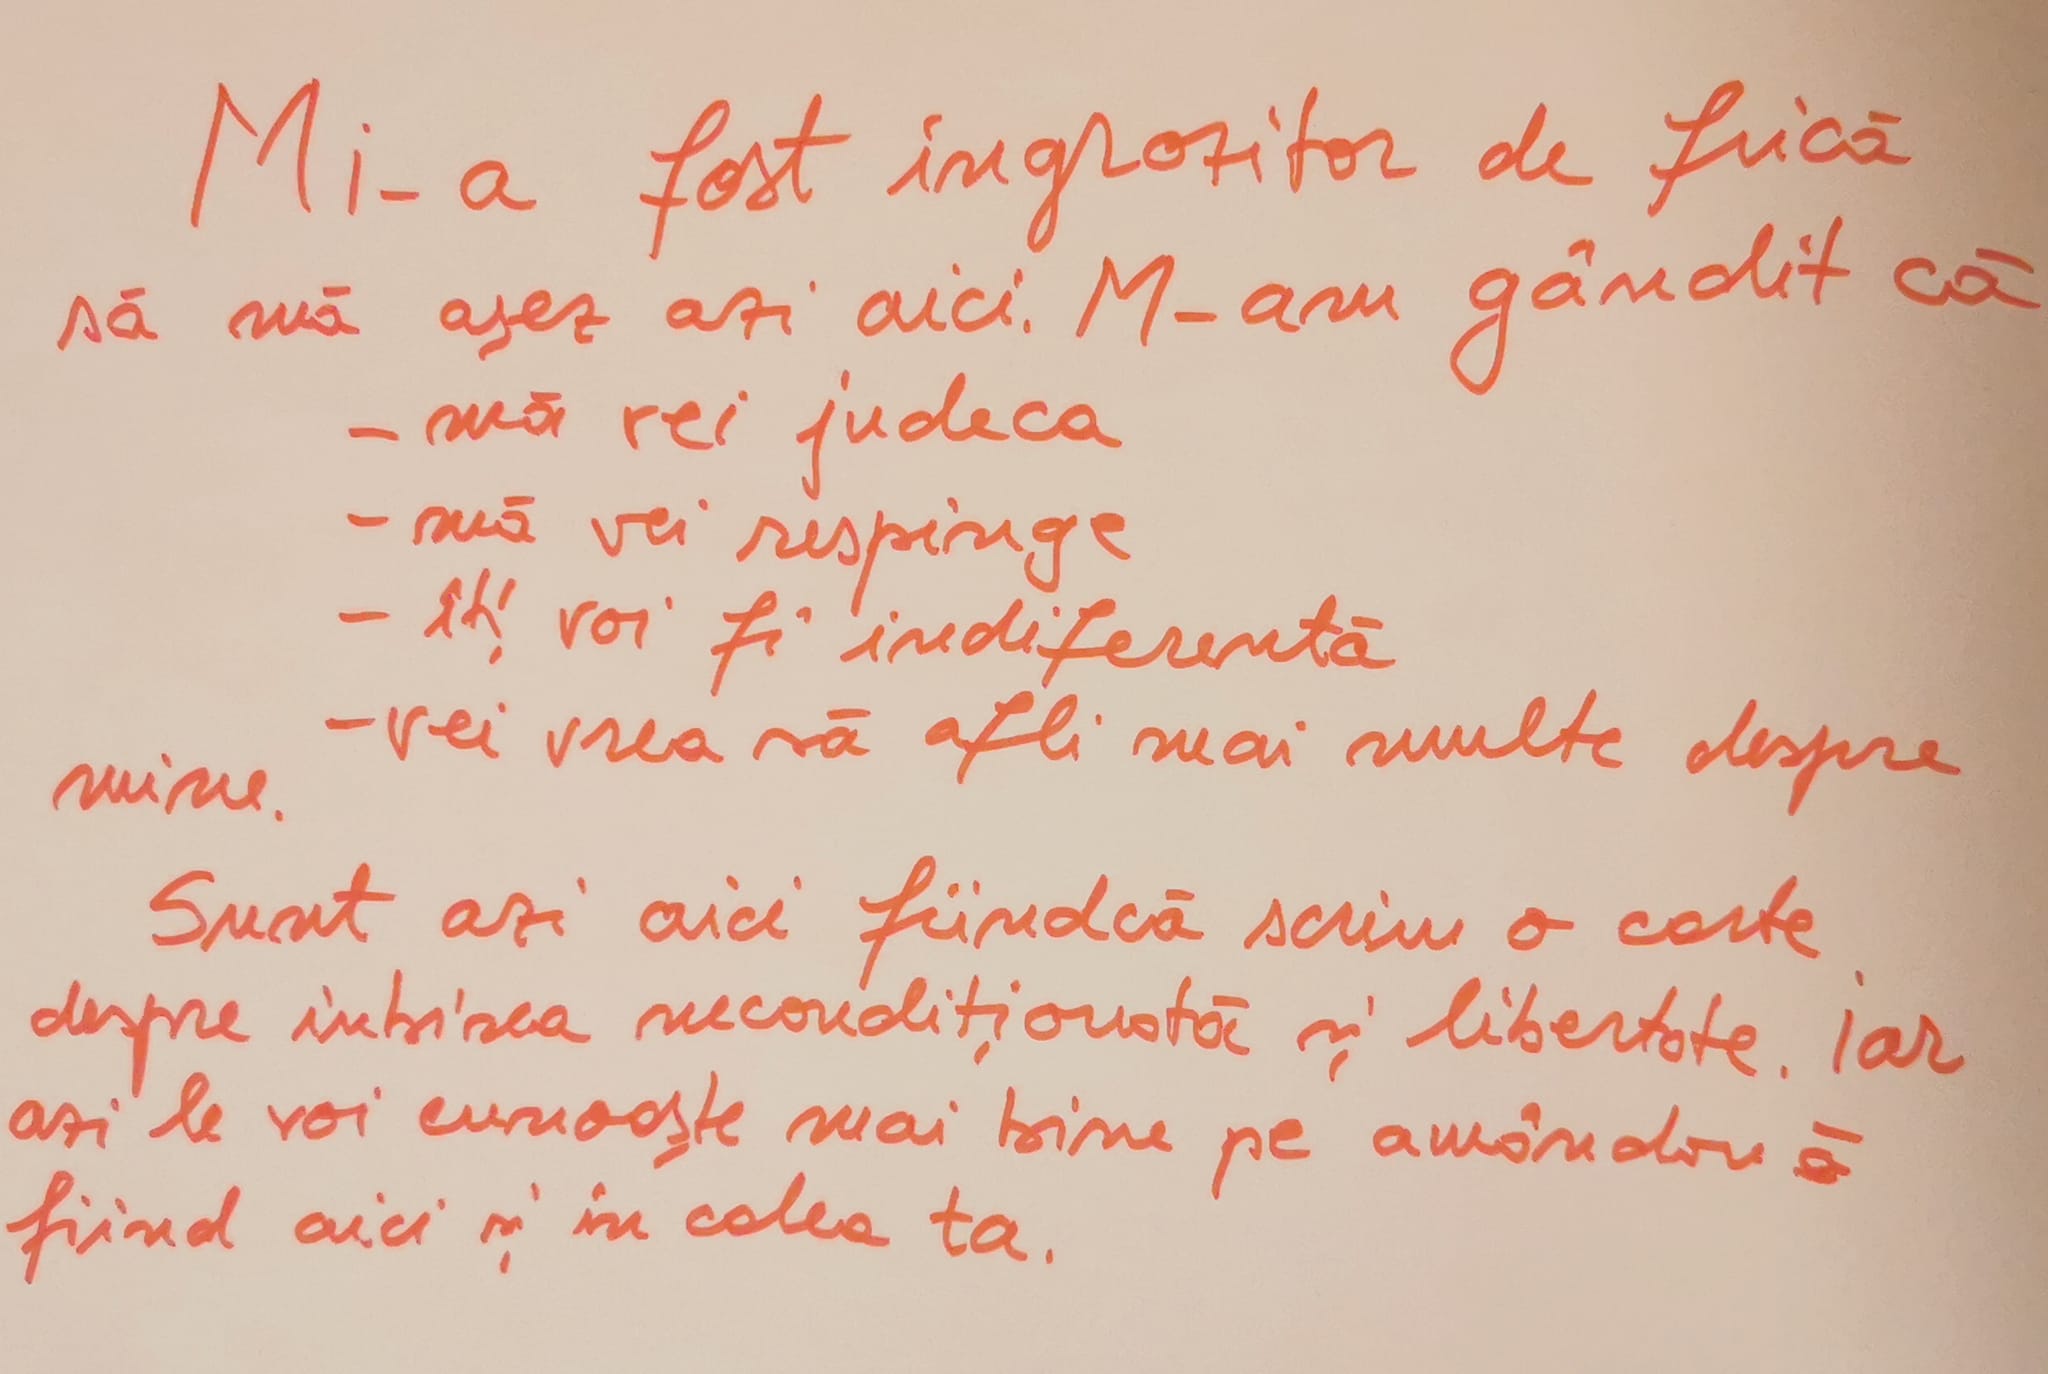 Mi-a fost îngrozitor de frică
să mă așez azi aici. M-am gândit că
- mă vei judeca
- mă vei respinge
- îți voi fi indiferentă
- vei vrea să afli mai multe despre
mine.
Sunt azi aici fiindcă scriu o carte
despre iubirea necondiționată și libertate. Iar
azi le voi cunoaște mai bine pe amândouă
fiind aici și în calea ta.